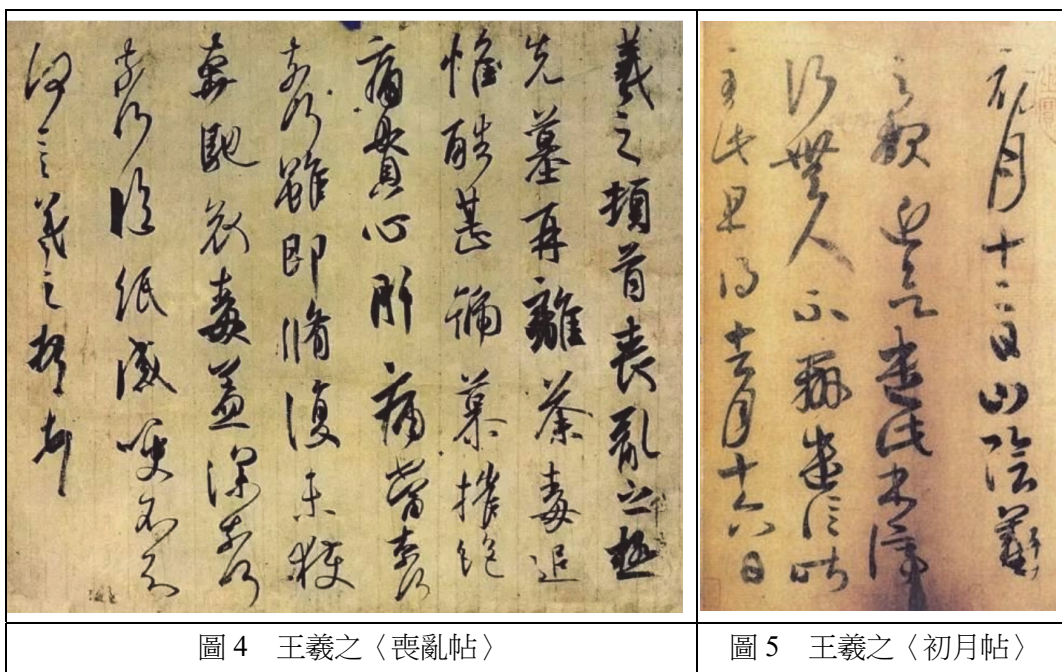 羲之頓首喪亂之極
先墓再離荼毒追
惟酷甚號慕摧絕
痛貫心肝痛當奈何
奈何雖即脩復未獲
奔馳哀毒益深奈何
奈何臨紙感哽不知
何言羲之頓首頓首
圖 4 王羲之〈喪亂帖〉
初月十二日山陰羲
之報近欲遣此書停
行無人不辦遣信昨
至此且得去月十六日
圖 5 王羲之〈初月帖〉